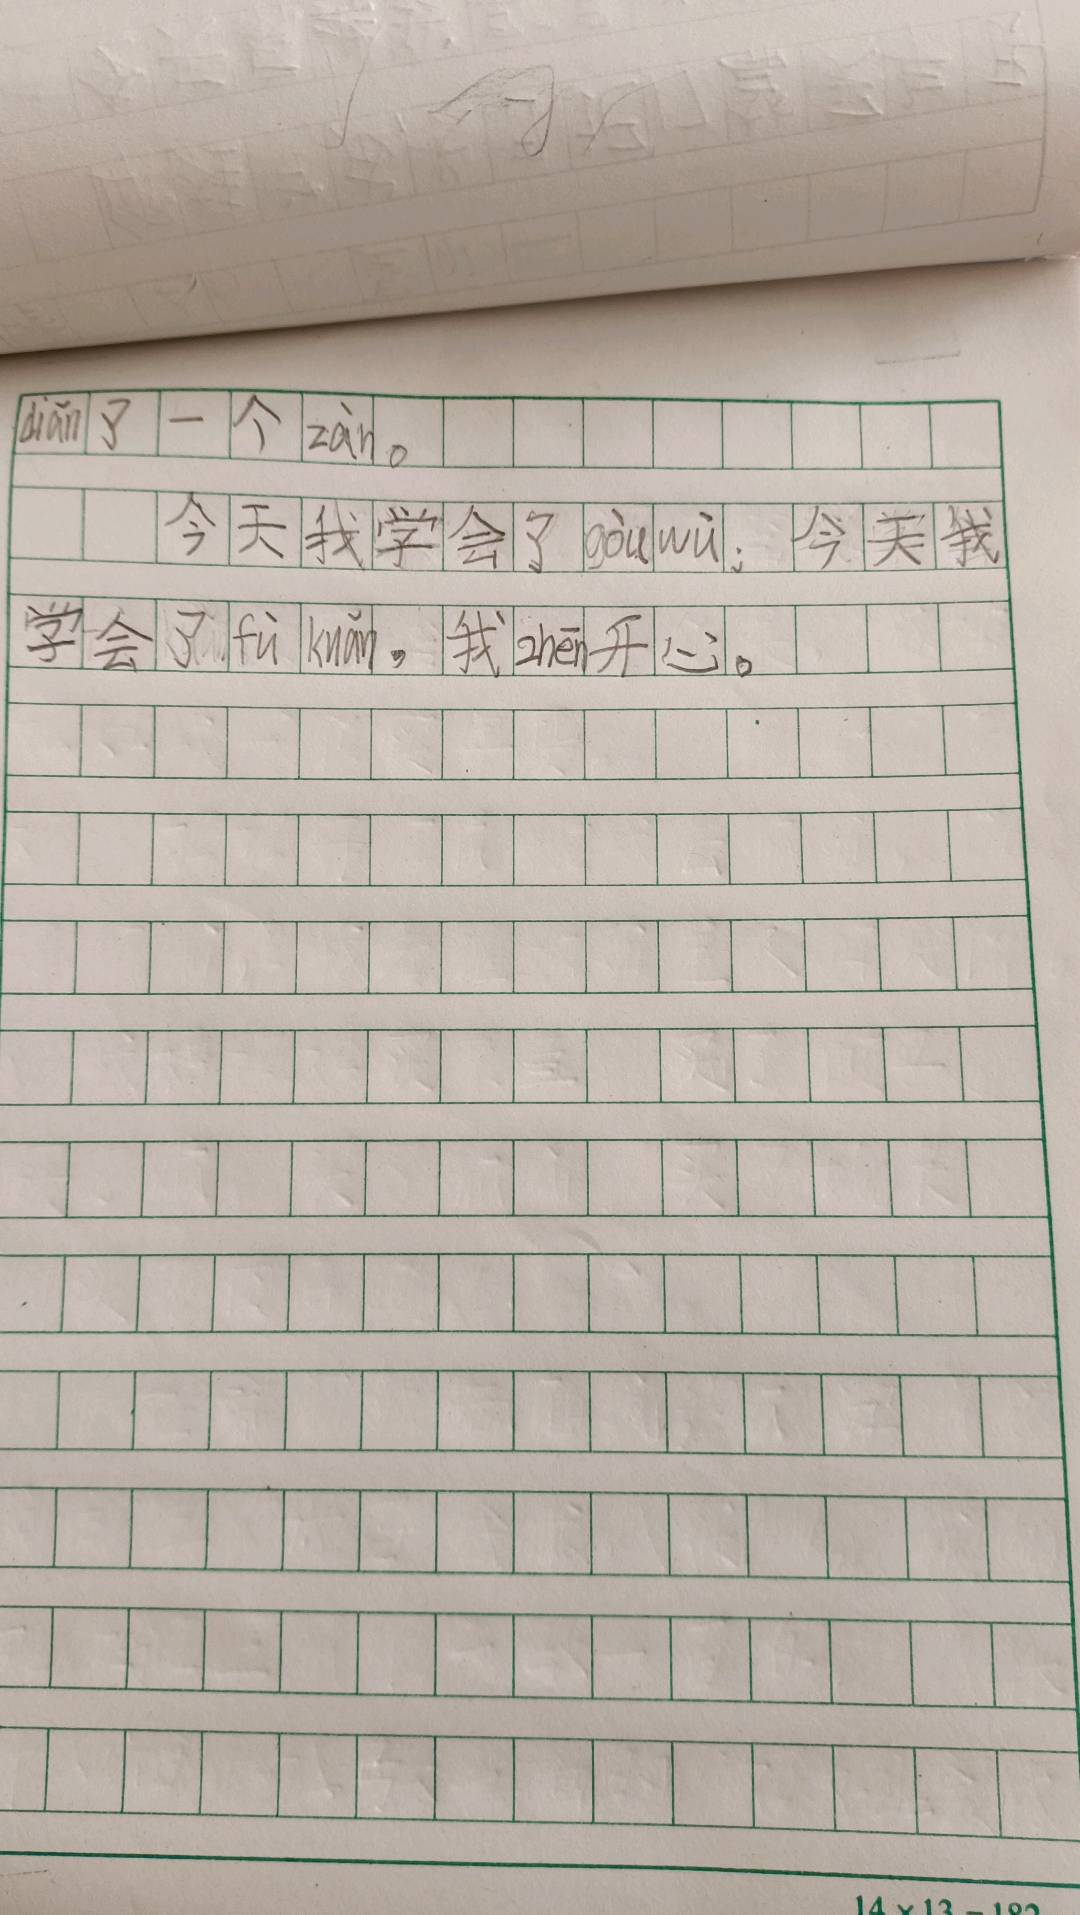 diǎn了一个zàn。
今天我学会了gòu wù；今天我
学会了fù kuǎn。我zhēn开心。
14×13=182